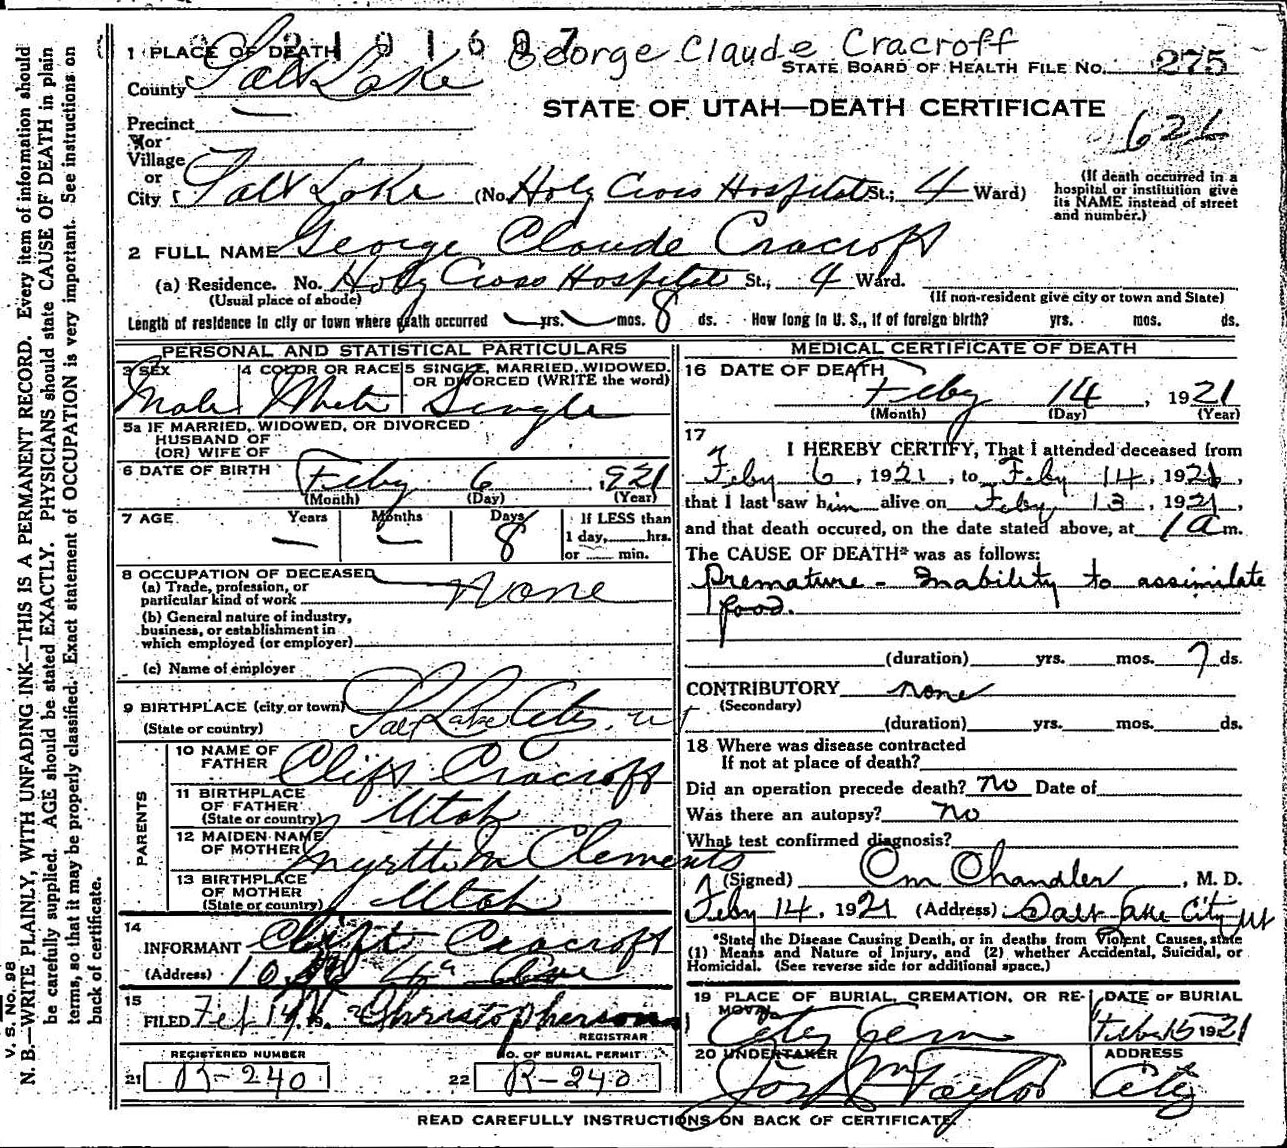 George Claude Cracroft
1 PLACE OF DEATH
STATE BOARD OF HEALTH FILE No. 275
County Salt Lake
STATE OF UTAH—DEATH CERTIFICATE
626
Precinct
or
Village
or
City Salt Lake (No. Holy Cross Hospital St.; 4 Ward)
(If death occurred in a hospital or institution give its NAME instead of street and number.)
2 FULL NAME George Claude Cracroft
(a) Residence. No. Holy Cross Hospital St., 4 Ward.
(Usual place of abode) (If non-resident give city or town and State)
Length of residence in city or town where death occurred — yrs. — mos. 8 ds. How long in U. S., if of foreign birth? yrs. mos. ds.
PERSONAL AND STATISTICAL PARTICULARS
3 SEX
Male
4 COLOR OR RACE
White
5 SINGLE, MARRIED, WIDOWED, OR DIVORCED (WRITE the word)
Single
5a IF MARRIED, WIDOWED, OR DIVORCED
HUSBAND OF
(OR) WIFE OF
6 DATE OF BIRTH Feby 6 1921
(Month) (Day) (Year)
7 AGE Years Months Days If LESS than
— — 8 1 day, hrs.
or min.
8 OCCUPATION OF DECEASED
(a) Trade, profession, or
particular kind of work None
(b) General nature of industry,
business, or establishment in
which employed (or employer)
(c) Name of employer
9 BIRTHPLACE (city or town) Salt Lake City, Ut
(State or country)
PARENTS
10 NAME OF
FATHER Clift Cracroft
11 BIRTHPLACE
OF FATHER Utah
(State or country)
12 MAIDEN NAME
OF MOTHER Myrtle M Clements
13 BIRTHPLACE
OF MOTHER Utah
(State or country)
14
INFORMANT Clift Cracroft
(Address)
15
FILED Feb 14 Christopherson
REGISTRAR
REGISTERED NUMBER
21 R-240
NO. OF BURIAL PERMIT
22 R-240
MEDICAL CERTIFICATE OF DEATH
16 DATE OF DEATH
Feby 14, 1921
(Month) (Day) (Year)
17
I HEREBY CERTIFY, That I attended deceased from
Feby 6, 1921, to Feby 14, 1921,
that I last saw him alive on Feby 13, 1921
and that death occured, on the date stated above, at 1 a m.
The CAUSE OF DEATH* was as follows:
Premature - Inability to assimilate
food.
(duration) yrs. mos. 7 ds.
CONTRIBUTORY none
(Secondary)
(duration) yrs. mos. ds.
18 Where was disease contracted
If not at place of death?
Did an operation precede death? no Date of
Was there an autopsy? no
What test confirmed diagnosis?
(Signed) Om Chandler, M. D.
Feby 14, 1921 (Address) Salt Lake City Ut
*State the Disease Causing Death, or in deaths from Violent Causes, state
(1) Means and Nature of Injury, and (2) whether Accidental, Suicidal, or
Homicidal. (See reverse side for additional space.)
19 PLACE OF BURIAL, CREMATION, OR RE-
MOVAL
City Cem
DATE OF BURIAL
Feb 15 1921
20 UNDERTAKER
Jos Wm Taylor
ADDRESS
City
READ CAREFULLY INSTRUCTIONS ON BACK OF CERTIFICATE.
V. S. No. 98
N. B.—WRITE PLAINLY, WITH UNFADING INK—THIS IS A PERMANENT RECORD. Every item of information should
be carefully supplied. AGE should be stated EXACTLY. PHYSICIANS should state CAUSE OF DEATH in plain
terms, so that it may be properly classified. Exact statement of OCCUPATION is very important. See instructions on
back of certificate.